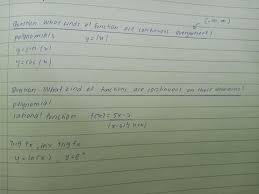 Question: What kinds of function are continuous everywhere? (-∞, ∞)
polynomials y=|x|
y=sin(x)
y=cos(x)
Question: What kind of functions are continuous on their domains?
polynomial
rational function f(x)=5x-2
Trig fx, inv trig fx
y=ln(x), y=e^x